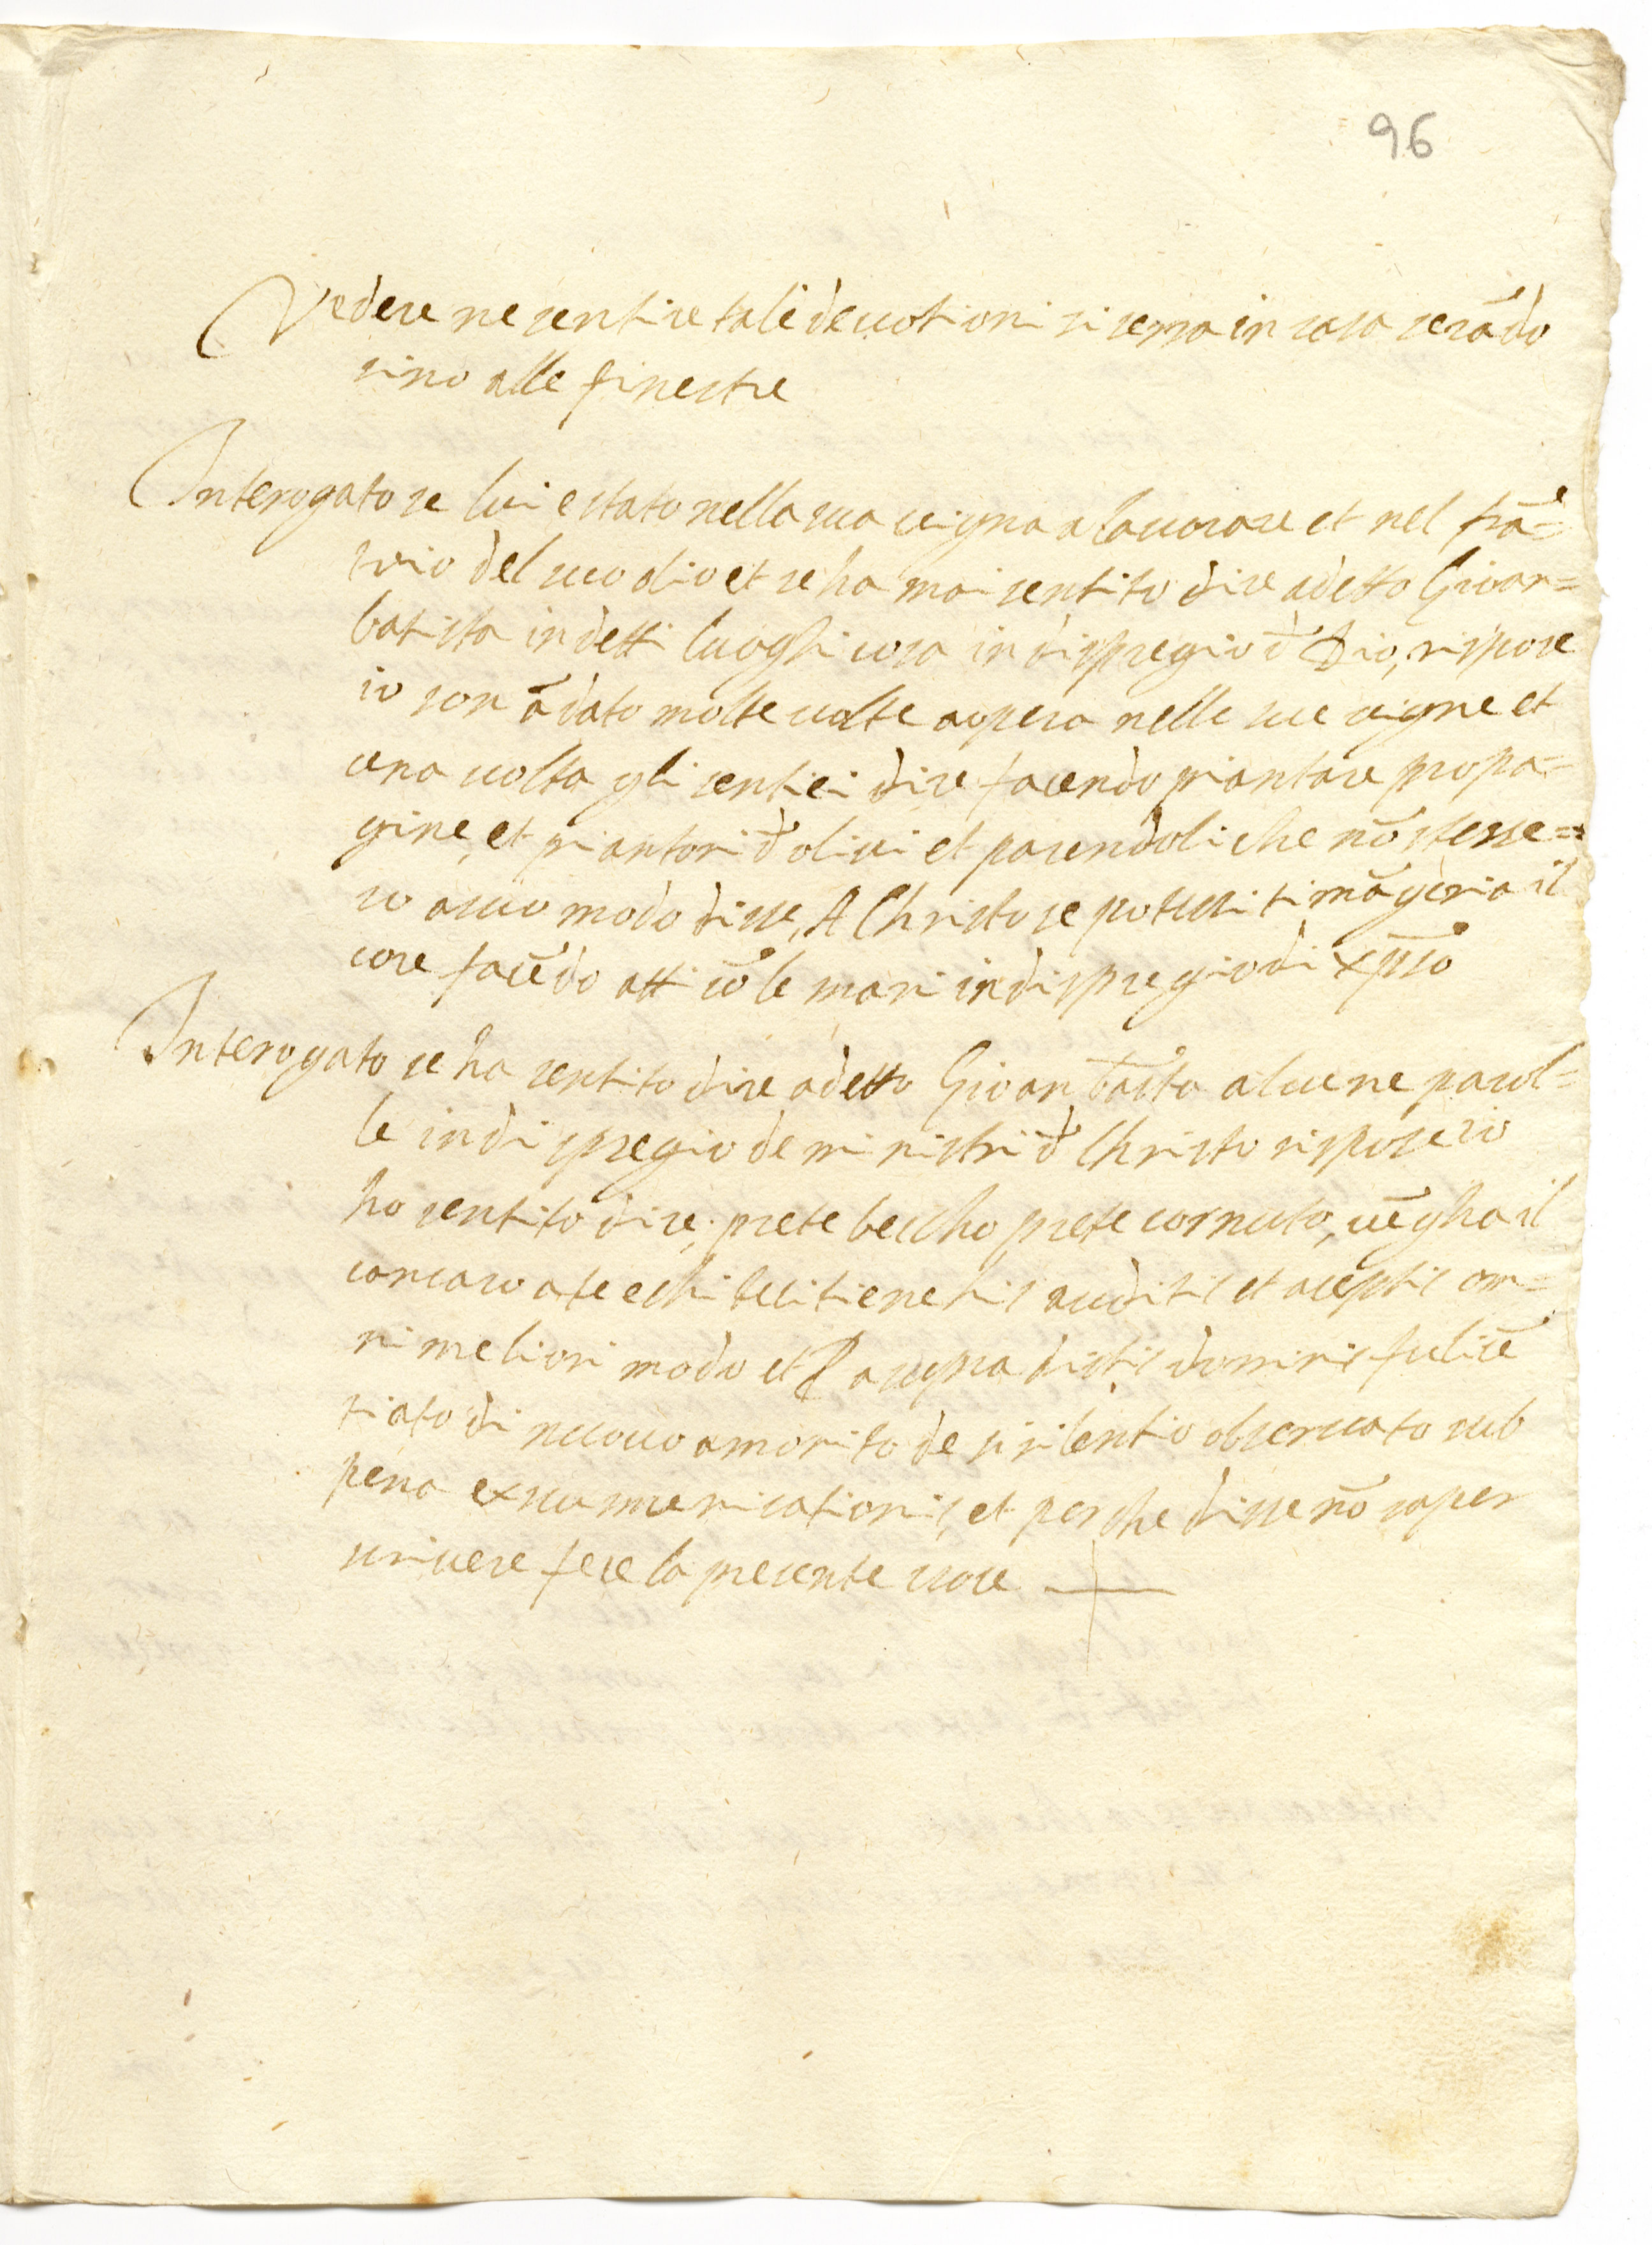 96
Vedere ne sentire tale devotioni si serra in casa serādo
sino alle finestre
Interogato se lui e stato nella sua vigna a lavorare et nel frā=
toio del suo olio et se ha mai sentito dire a detto Giovan=
batista in detti luoghi cosa in dispregio d Dio, rispose
io son ādato molte volte a opera nelle sue vigne et
una volta gli sentiei dire facendo piantare propa=
gine, et piantoni d olivi et parendoli che nō stesse=
ro a suo modo disse, A Christo se potessi ti māgeria il
core facēdo atti cō le mani in dispregio di xp̄sto
Interogato se ha sentito dire a detto Giovan bāsta alcune parol=
le in dispregio de ministri d Christo rispose io
ho sentito dire, prete beccho prete cornuto, vēgha il
cancaro a te e chi ti tiene his auditis et aceptis om=
ni meliori modo et dictis dominis fu licē
tiato di nuovo amonito de silentio observato sub
pena excumunicationis, et perche disse nō saper
scrivere fece la presente croce +